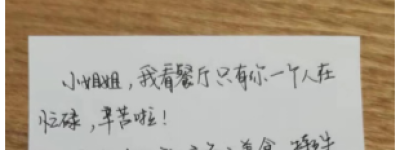 小姐姐，我看餐厅只有你一个人在
忙碌，辛苦啦！